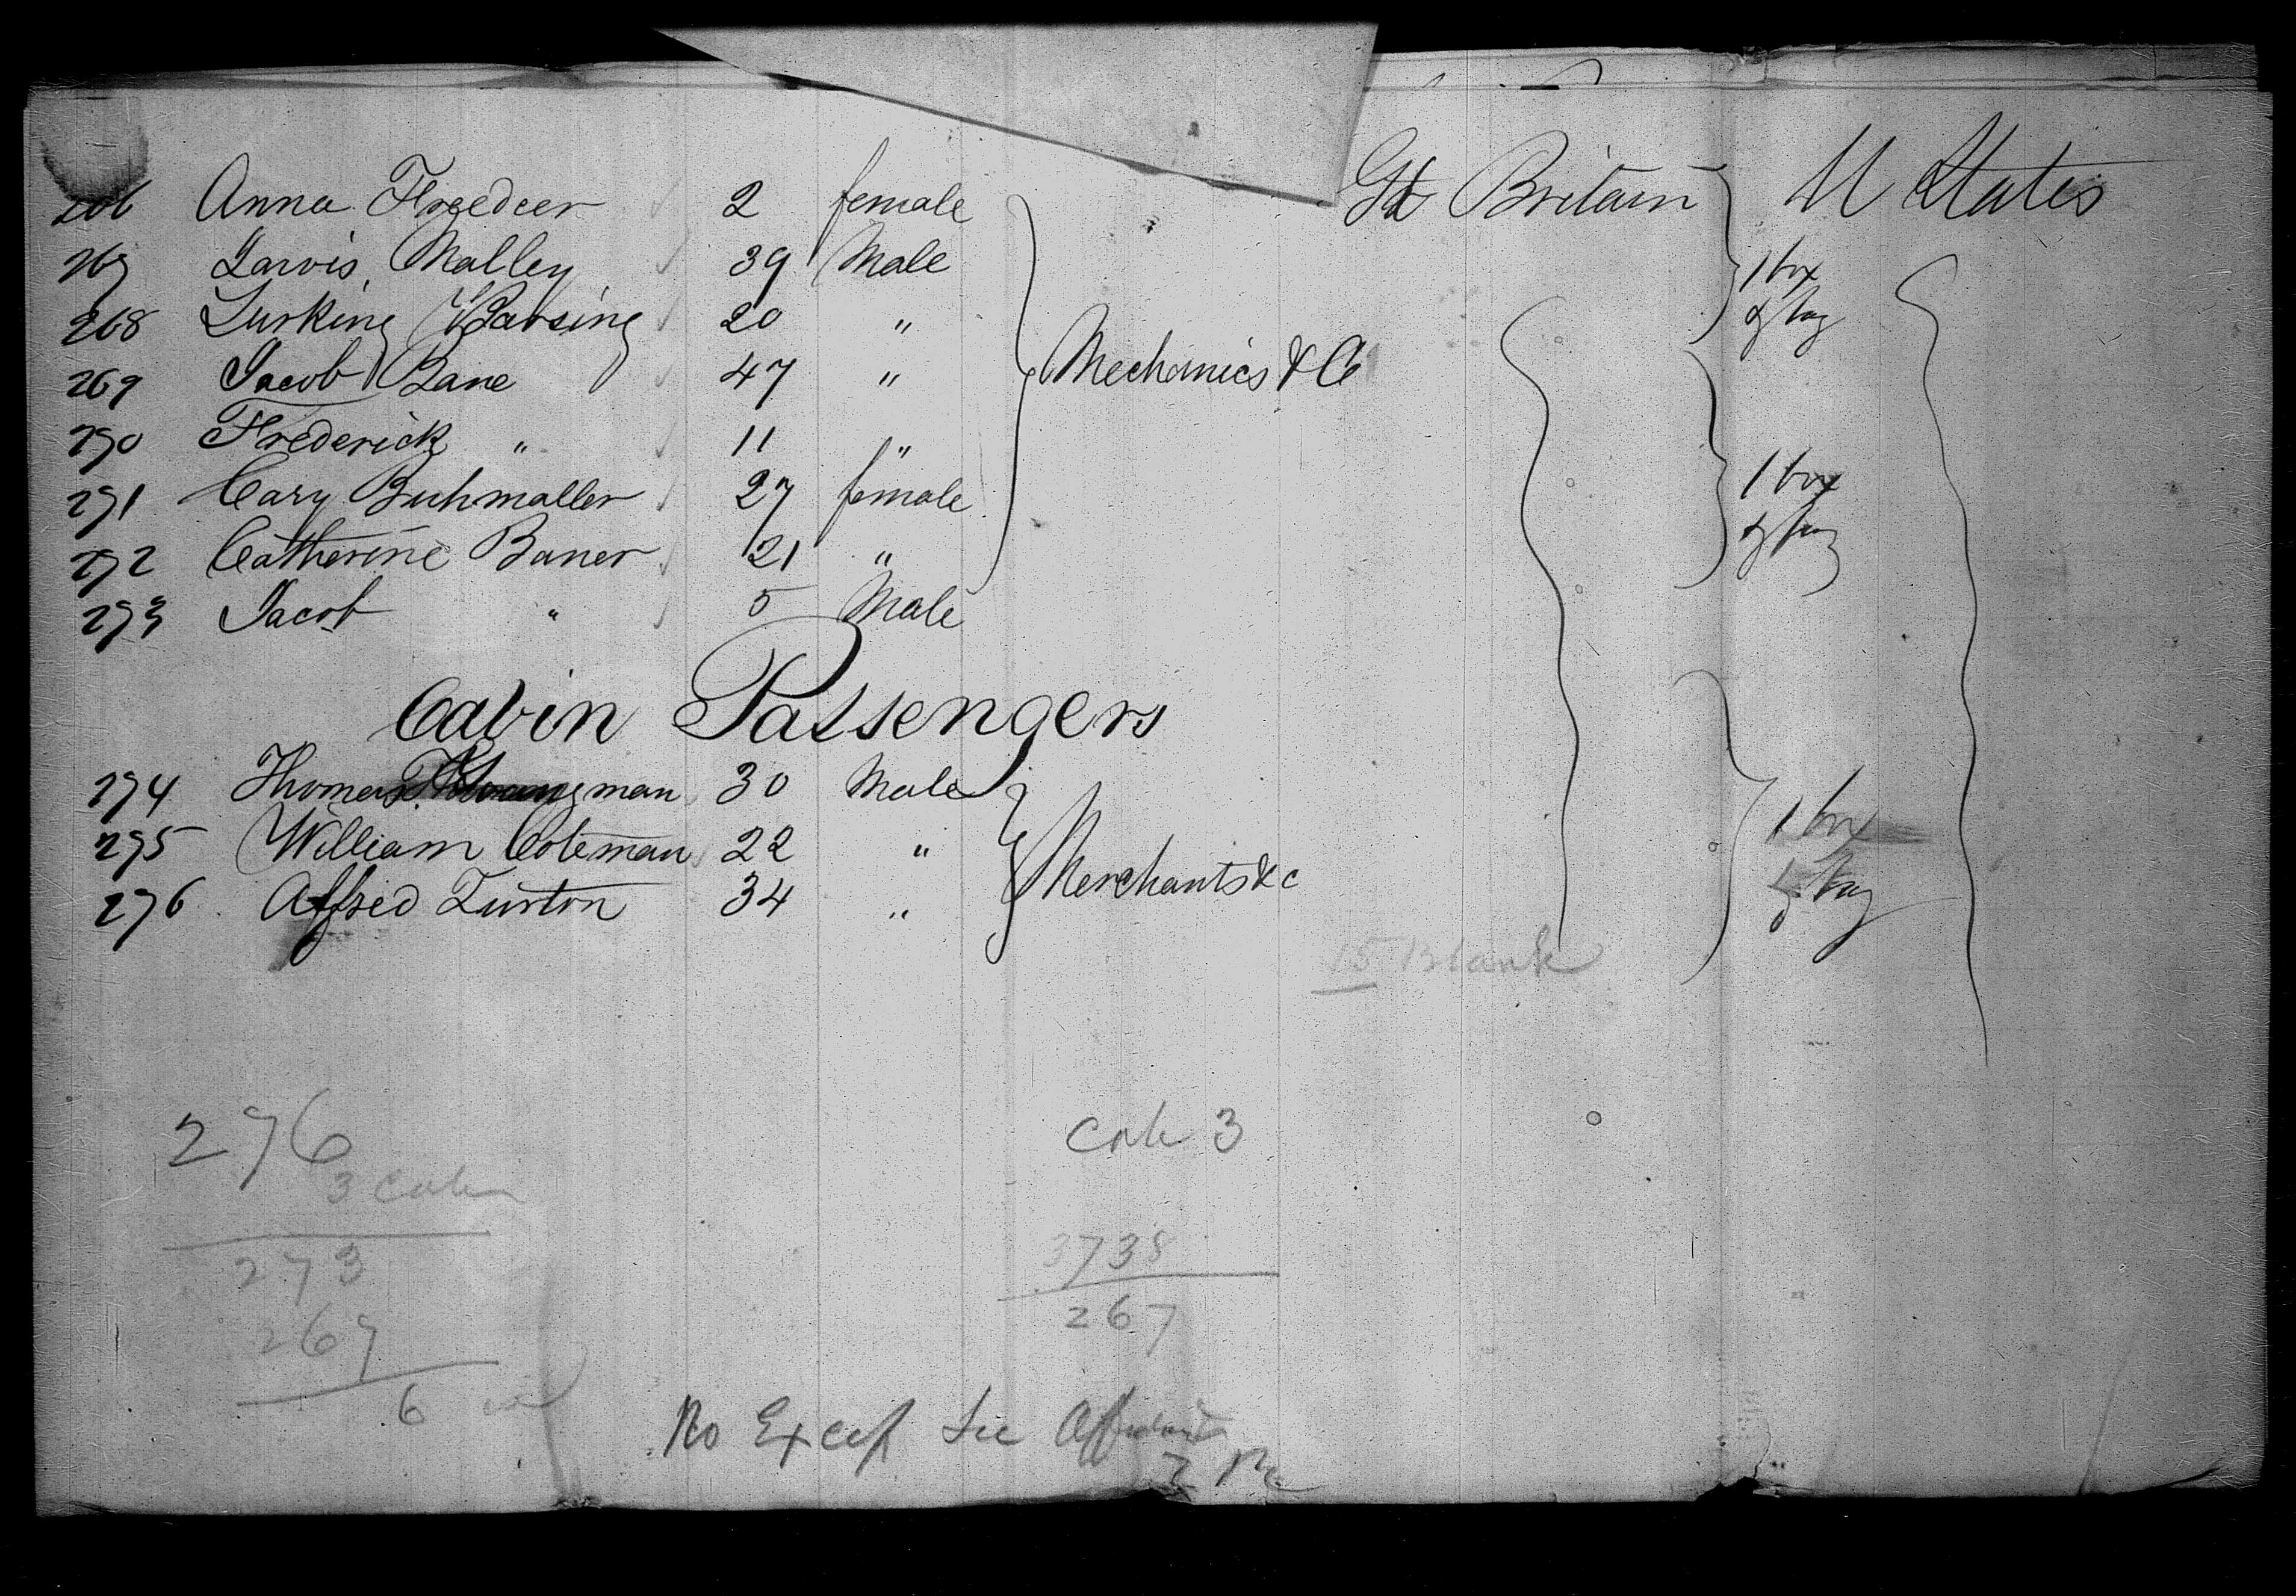 266 Anna Freedeer 2 female Gt Britain U States
267 Jarvis Malley 39 Male 1 box
268 Lurking Warsing 20 " & bag
269 Jacob Bane 47 " Mechanics & C
270 Frederick " 11 "
271 Cary Buhmaller 27 female 1 box
272 Catherine Baner 21 " & bag
273 Jacob " 5 Male
Cabin Passengers
274 Thomas man 30 Male 1 box
275 William Coleman 22 " Merchants &c
276 Alfred Turton 34 " & bag
15 Blank
276 Cab 3
3 Cabin
273 3738
267 267
6
No Excep See Affidavit